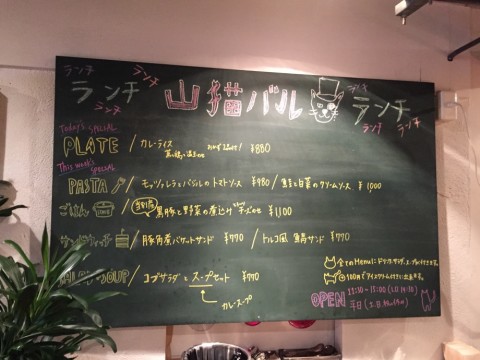 ランチ ランチ ランチ ランチ
山猫バル
ランチ ランチ ランチ ランチ
Today's SPECIAL
PLATE / カレーライス ¥880
This week's SPECIAL
PASTA / モッツァレラとバジルのトマトソース ¥980 / 鮭と白菜のクリームソース ¥1000
ごはん / 黒豚と野菜の煮込み チーズのせ ¥1100
サンドウィッチ / 豚角煮バゲットサンド ¥770 / トルコ風 鯖サンド ¥770
SALAD SOUP / コブサラダとスープセット ¥770
カレースープ
全てのMenuにドリンク、サラダ、スープが付きます。
OPEN 11:30~15:00 (LO 14:30)